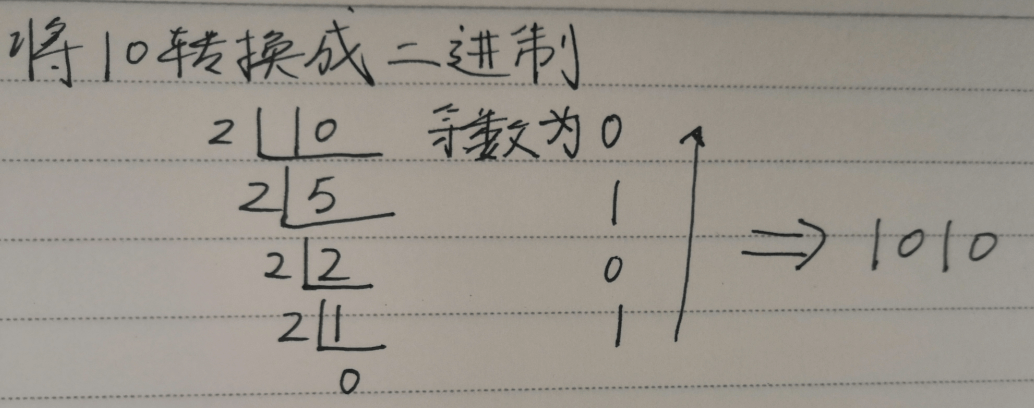 将10转换成二进制
2 10 余数为 0
2 5 1
2 2 0 ⇒ 1010
2 1 1
0